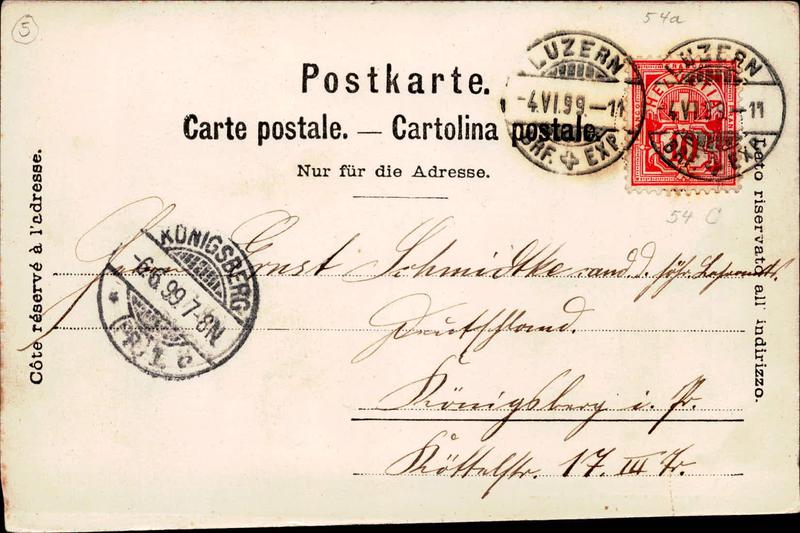 5
54a
Postkarte.
Carte postale. — Cartolina postale.
Nur für die Adresse.
LUZERN
-4.VI.99-11
BRF. EXP.
LUZERN
4.VI.99-11
BRF. EXP.
HELVETIA
10
54 C
Côte réservé à l'adresse.
Lato riservato all' indirizzo.
KÖNIGSBERG
-6.6.99.7-8N
(PR.) 1.
Herrn Ernst Schmidtke cand. d. höh. Lehramts.
Deutschland.
Königsberg i. Pr.
Köttelstr. 17. III Tr.